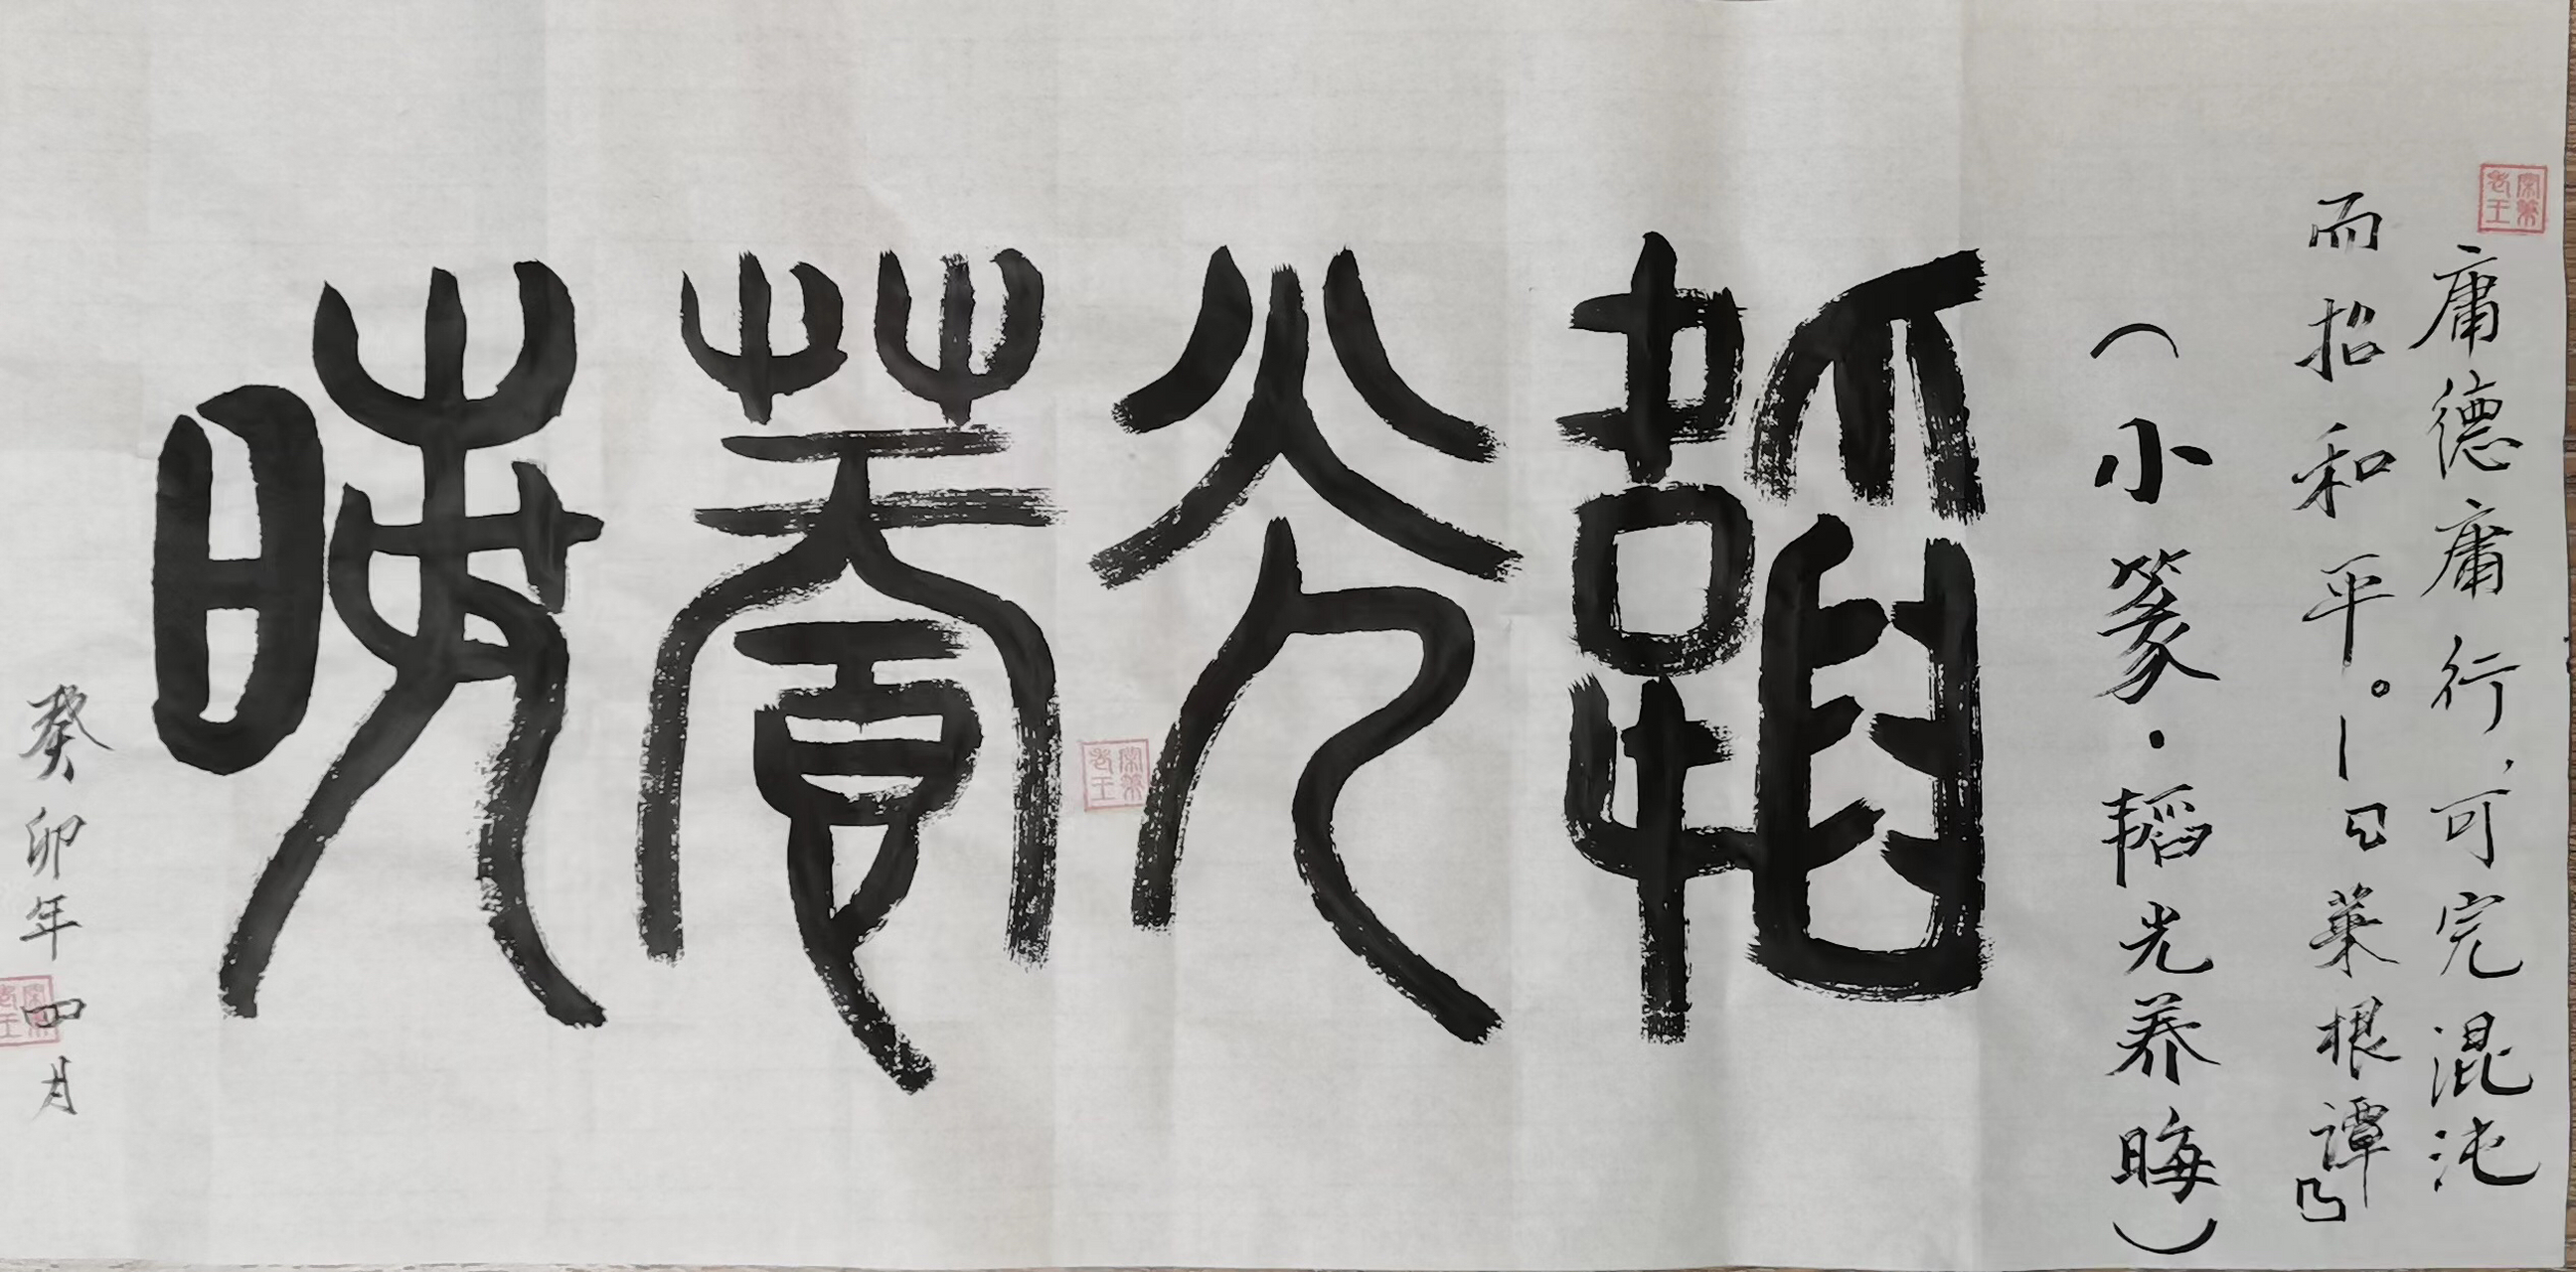 庸德庸行，可完混沌
而招和平。—《菜根谭》
（小篆·韬光养晦）
韬光养晦
癸卯年四月